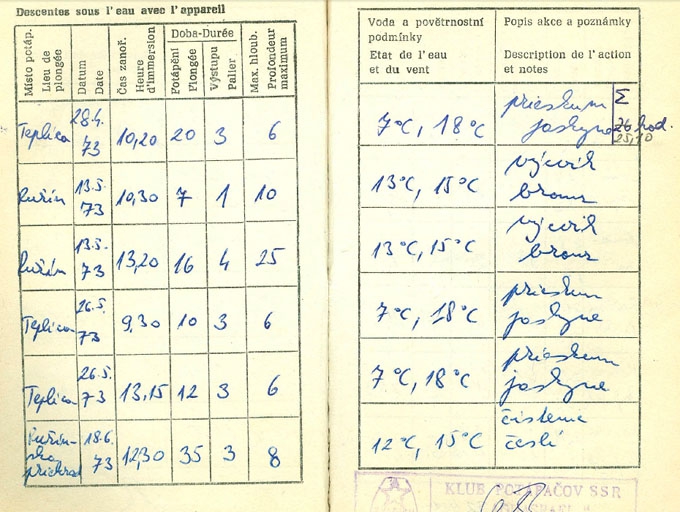 Descentes sous l'eau avec l'appareil
Místo potáp.
Lieu de
plongée
Datum
Date
Čas zanoř.
Heure
d'immersion
Doba-Durée
Potápění
Plongée
Výstupu
Palier
Max. hloub.
Profondeur
maximum
Teplica 28.4. 73 10,20 20 3 6
Ružín 13.5. 73 10,30 7 1 10
Ružín 13.5. 73 13,20 16 4 25
Teplica 26.5. 73 9,30 10 3 6
Teplica 26.5. 73 13,15 12 3 6
18.6. 73 12,30 35 3 8
Voda a povětrnostní
podmínky
Etat de l'eau
et du vent
Popis akce a poznámky
Description de l'action
et notes
7°C, 18°C
prieskum
jaskyne
Σ
26 hod.
13°C, 15°C
výcvik
bronz
13°C, 15°C
výcvik
bronz
7°C, 18°C
prieskum
jaskyne
7°C, 18°C
prieskum
jaskyne
12°C, 15°C
čistenie
česlí
KLUB POTÁPAČOV SSR